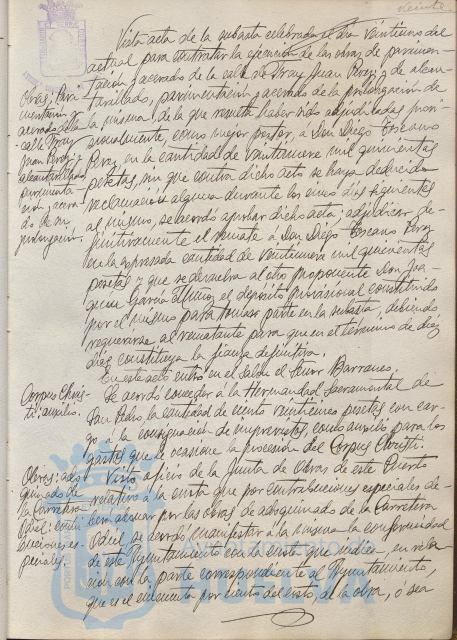 Vista acta de la subasta celebrada el dia veintiuno del
actual para contratar la ejecución de las obras de pavimen-
tación y acerado de la calle de Fray Juan Perez y de alcan-
tarillado, pavimentación y acerado de la prolongación de
la misma, de la que resulta haber sido adjudicadas provi-
sionalmente, como mejor postor, a Don Diego Toscano
Perez en la cantidad de veintinueve mil quinientas
pesetas, sin que contra dicho acto se haya deducido
reclamación alguna durante los cinco dias siguientes
al mismo, se acordó aprobar dicha acta; adjudicar de-
finitivamente el remate á Don Diego Toscano Perez
en la expresada cantidad de veintinueve mil quinientas
pesetas y que se devuelva al otro proponente Don Joa-
quin Garcia el depósito provisional constituido
por el mismo para tomar parte en la subasta, debiendo
requerirse al rematante para que en el término de diez
dias constituya la fianza definitiva.
En este acto entró en el Salón el Señor Barranco.
Se acordó conceder á la Hermandad Sacramental de
San Pedro la cantidad de ciento veinticinco pesetas con car-
go á la consignación de imprevistos, como auxilio para los
gastos que se ocasione la procesión del Corpus Christi.
Visto oficio de la Junta de Obras de este Puerto
relativo á la cuota que por contribuciones especiales de-
berá abonar por las obras de adoquinado de la Carretera
Odiel, se acordó manifestar á la misma la conformidad
de este Ayuntamiento con la cuota que indica, en rela-
ción con la parte correspondiente al Ayuntamiento,
que es el cincuenta por ciento del costo, de la obra, ó sea
Obras: Pavi-
mentación y
acerado de la
calle Fray
Juan Perez y
alcantarillado,
pavimenta-
ción y acera-
do de su
prolongación.
Corpus Chris-
ti: auxilio.
Obras: ado-
quinado de
la Carretera
Odiel: contri-
buciones es-
peciales.